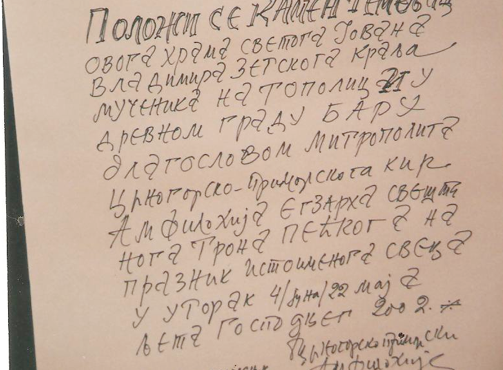 Положи се камен темељац
овога храма светога Јована
Владимира Зетскога краља
мученика на Тополици у
древном граду Бару
благословом митрополита
Црногорско-Приморскога кир
Амфилохија егзарха свеште
нога трона Пећкога на
празник истоименога свеца
у уторак 4/јуна/22 маја
љета Господњег 2002.
Црногорско приморски
Амфилохије